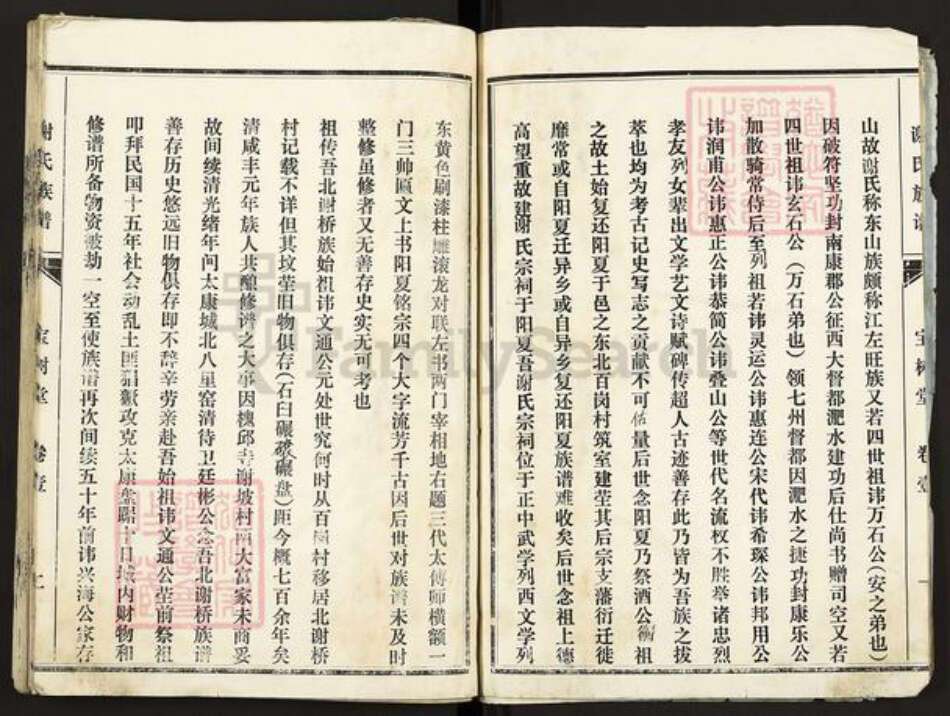 谢氏族谱 宝树堂 卷壹
山故谢氏称东山族颇称江左旺族又若四世祖讳万石公(安之弟也)
因破符坚功封南康郡公征西大督都淝水建功后仕尚书赠司空又若
四世祖讳玄石公(万石弟也)领七州督都因淝水之捷功封康乐公
加散骑常侍后至列祖若讳灵运公讳惠连公宋代讳希琛公讳邦用公
讳润甫公讳惠正公讳恭简公讳叠山公等世代名流权不胜举诸忠烈
孝友列女辈出文学艺文诗赋碑传超人古迹善存此乃皆为吾族之拔
萃也均为考古记史写志之贡献不可估量后世念阳夏乃祭酒公衡祖
之故土始复还阳夏于邑之东北百岗村筑室建茔其后宗支藩衍迁徙
靡常或自阳夏迁异乡或自异乡复还阳夏族谱难收矣后世念祖上德
高望重故建谢氏宗祠于阳夏吾谢氏宗祠位于正中武学列西文学列
东黄色刷漆柱雕滚龙对联左书两门宰相地右题三代太傅师横额一
门三帅匾文上书阳夏铭宗四个大字流芳千古因后世对族谱未及时
整修虽修者又无善存史实无可考也
祖传吾北谢桥族始祖讳文通公元处世究何时从百岗村移居北谢桥
村记载不详但其坟茔旧物俱存(石臼碾磙碾盘)距今概七百余年矣
清咸丰元年族人共酿修谱之大事因槐邱寺谢坡村两大富家未商妥
故间续清光绪年间太康城北八里窑清待卫廷彬公念吾北谢桥族谱
善存历史悠远旧物俱存即不辞辛劳亲赴吾始祖讳文通公茔前祭祖
叩拜民国十五年社会动乱土匪猖獗攻克太康盘踞十日城内财物和
修谱所备物资被劫一空至使族谱再次间续五十年前讳兴海公家存
谢氏族谱 宝树堂 卷壹
FamilySearch